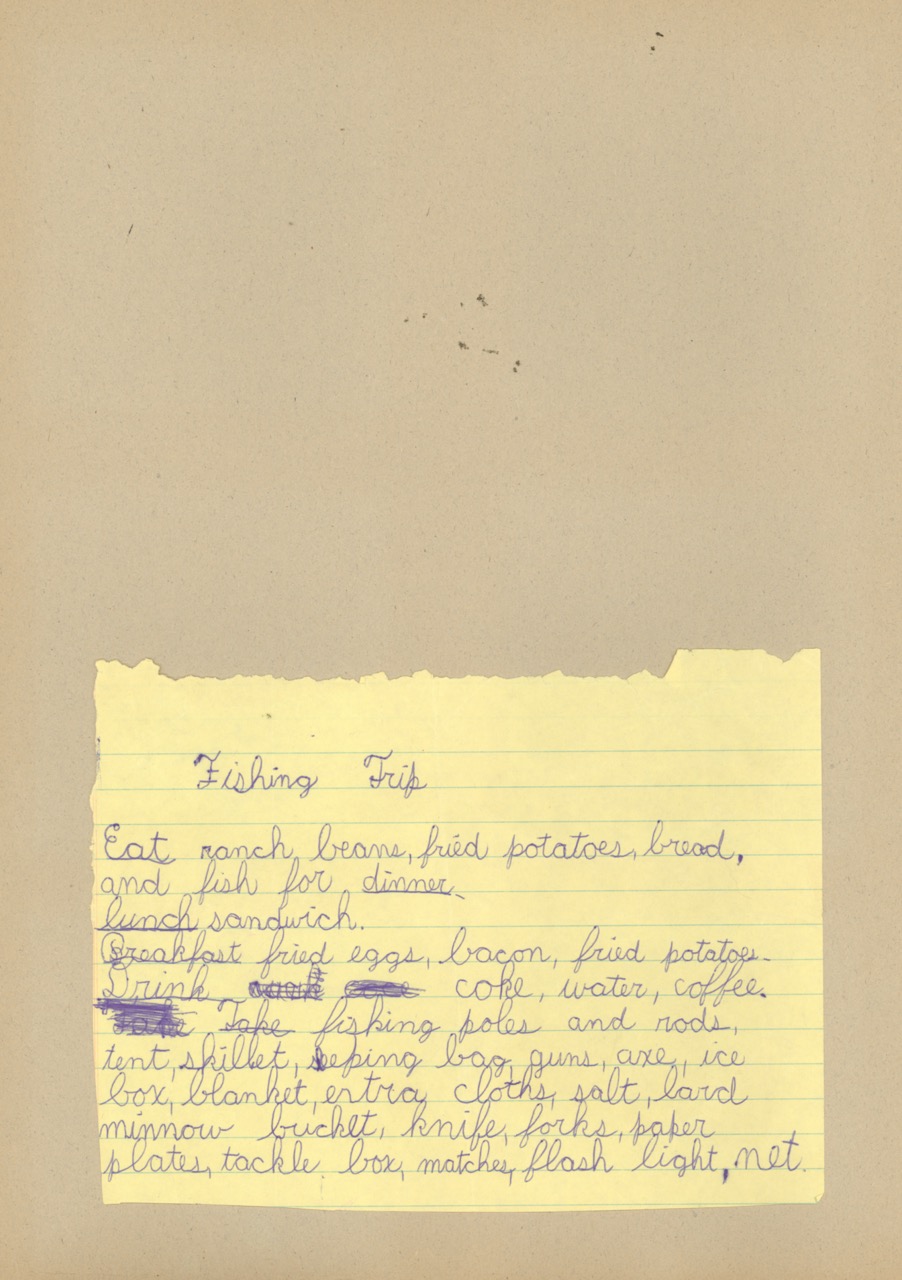 Fishing Trip
Eat ranch beans, fried potatoes, bread,
and fish for dinner
lunch sandwich.
Breakfast fried eggs, bacon, fried potatoes.
Drink coke, water, coffee.
Take Take fishing poles and rods,
tent, skillet, sleeping bag, guns, axe, ice
box, blanket, extra cloths, salt, lard
minnow bucket, knife, forks, paper
plates, tackle box, matches, flash light, net.